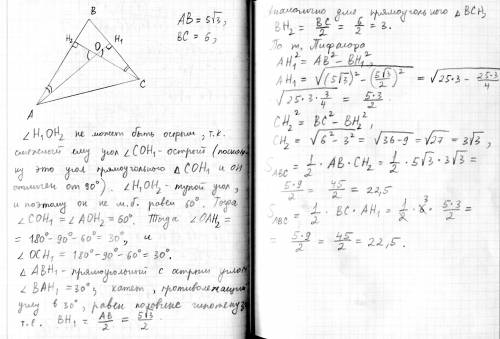 B
AB = 5√3,
BC = 6,
H₂ O H₁
A C
∠H₁OH₂ не может быть острым, т.к.
смежный ему угол ∠COH₁ - острый (посколь-
ку это угол прямоугольного △COH₁ и он
отличен от 90°). ∠H₁OH₂ - тупой угол,
и поэтому он не м.б. равен 60°. Тогда
∠COH₁ = ∠AOH₂ = 60°. Тогда ∠OAH₂ =
= 180° - 90° - 60° = 30°, и
∠OCH₁ = 180° - 90° - 60° = 30°.
△ABH₁ - прямоугольный с острым углом
∠BAH₁ = 30°; катет, противолежащий
углу в 30°, равен половине гипотенузы,
т.е. BH₁ = AB/2 = 5√3/2.
Аналогично для прямоугольного △BCH₂
BH₂ = BC/2 = 6/2 = 3.
По т. Пифагора
AH₁² = AB² - BH₁²,
AH₁ = √((5√3)² - (5√3/2)²) = √(25·3 - 25·3/4) =
√(25·3·3/4) = 5·3/2.
CH₂² = BC² - BH₂²,
CH₂ = √(6² - 3²) = √(36-9) = √27 = 3√3,
S_ABC = 1/2 · AB · CH₂ = 1/2 · 5√3 · 3√3 =
5·9/2 = 45/2 = 22,5
S_ABC = 1/2 · BC · AH₁ = 1/2 · 6 · 5·3/2 =
= 5·9/2 = 45/2 = 22,5.